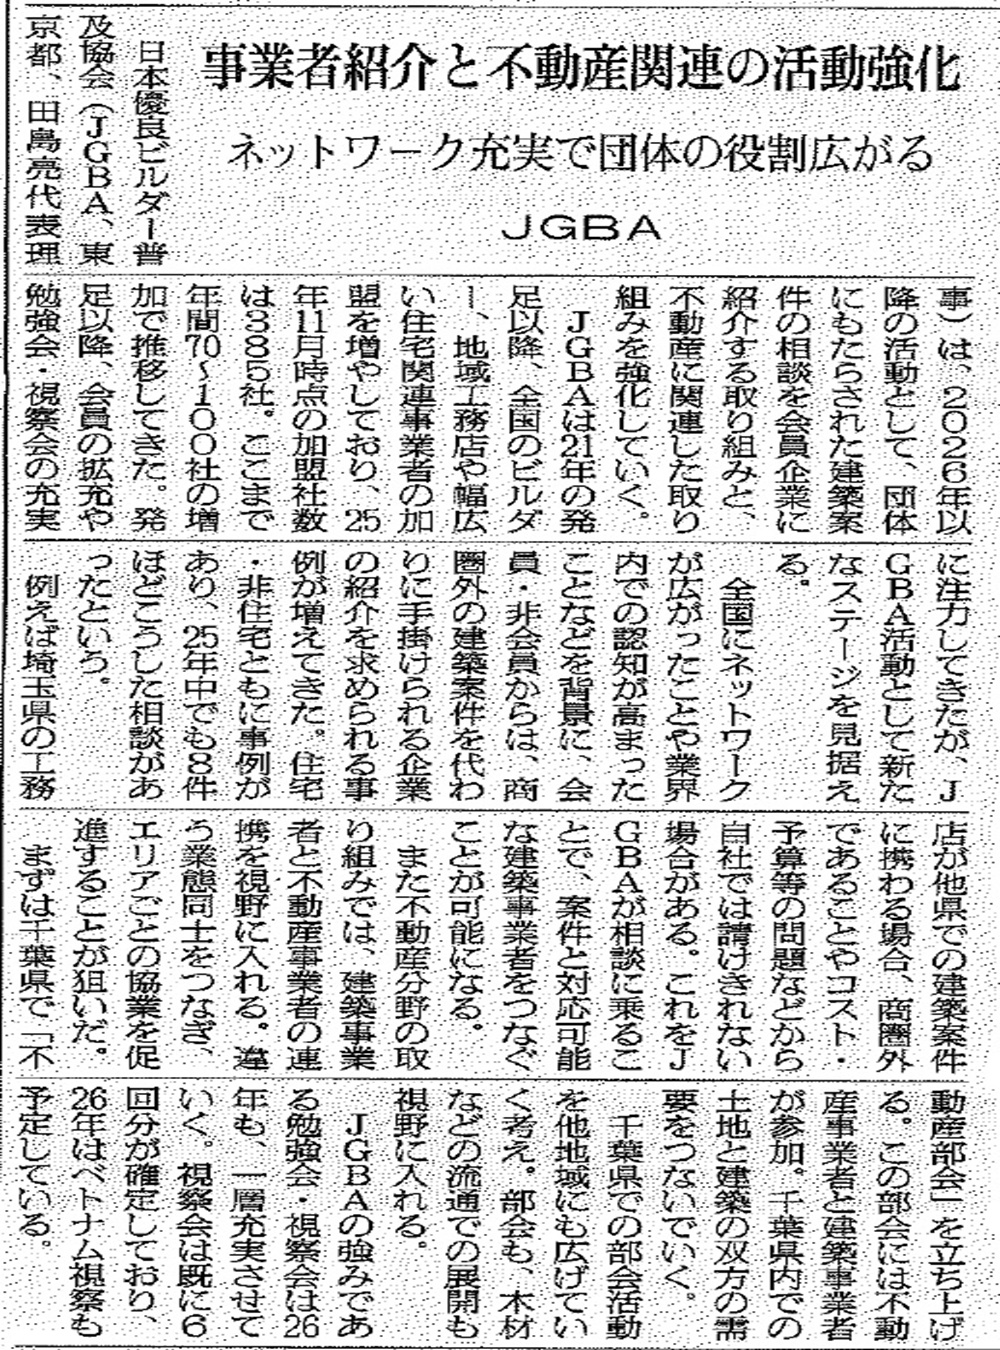 事業者紹介と不動産関連の活動強化
ネットワーク充実で団体の役割広がる
JGBA
日本優良ビルダー普
及協会(JGBA、東
京都、田島亮代表理
事)は、2026年以
降の活動として、団体
にもたらされた建築案
件の相談を会員企業に
紹介する取り組みと、
不動産に関連した取り
組みを強化していく。
JGBAは21年の発
足以降、全国のビルダ
ー、地域工務店や幅広
い住宅関連事業者の加
盟を増やしており、25
年11月時点の加盟社数
は385社。ここまで
年間70〜100社の増
加で推移してきた。発
足以降、会員の拡充や
勉強会・視察会の充実
に注力してきたが、J
GBA活動として新た
なステージを見据え
る。
全国にネットワーク
が広がったことや業界
内での認知が高まった
ことなどを背景に、会
員・非会員からは、商
圏外の建築案件を代わ
りに手掛けられる企業
の紹介を求められる事
例が増えてきた。住宅
・非住宅ともに事例が
あり、25年中でも8件
ほどこうした相談があ
ったという。
例えば埼玉県の工務
店が他県での建築案件
に携わる場合、商圏外
であることやコスト・
予算等の問題などから
自社では請けきれない
場合がある。これをJ
GBAが相談に乗るこ
とで、案件と対応可能
な建築事業者をつなぐ
ことが可能になる。
また不動産分野の取
り組みでは、建築事業
者と不動産事業者の連
携を視野に入れる。違
う業態同士をつなぎ、
エリアごとの協業を促
進することが狙いだ。
まずは千葉県で「不
動産部会」を立ち上げ
る。この部会には不動
産事業者と建築事業者
が参加。千葉県内での
土地と建築の双方の需
要をつないでいく。
千葉県での部会活動
を他地域にも広げてい
く考え。部会も、木材
などの流通での展開も
視野に入れる。
JGBAの強みであ
る勉強会・視察会は26
年も、一層充実させて
いく。視察会は既に6
回分が確定しており、
26年はベトナム視察も
予定している。